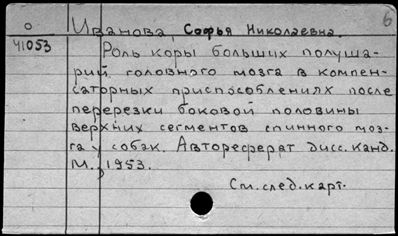 6
О Иванова, Софья Николаевна.
41053 Роль коры больших полуша-
рий головного мозга в компен-
саторных приспособлениях после
перерезки боковой половины
верхних сегментов спинного моз-
га у собак. Автореферат дисс. канд.
М., 1953.
См. след. карт.